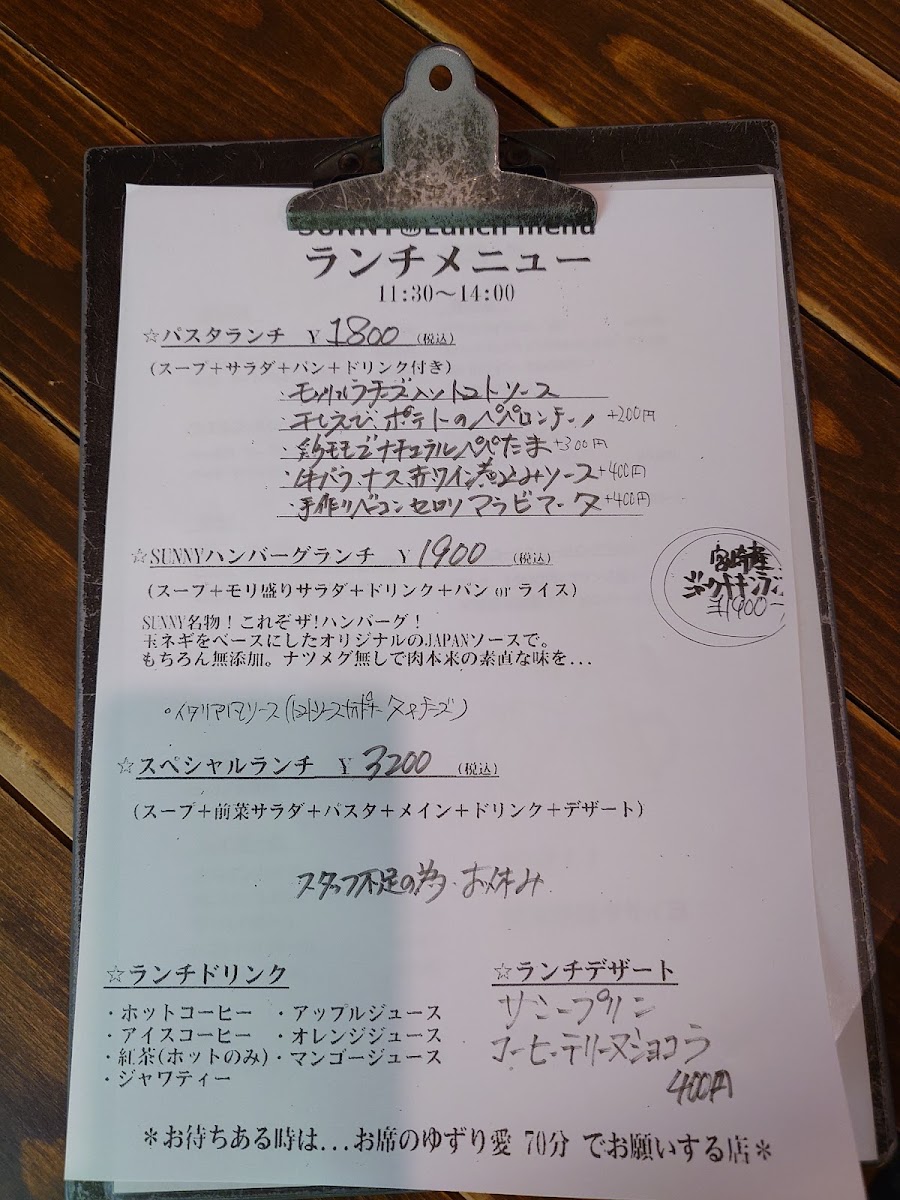 SUNNY Lunch menu
ランチメニュー
11:30～14:00
☆パスタランチ ￥1800 (税込)
(スープ＋サラダ＋パン＋ドリンク付き)
・モッツァレラチーズ入りトマトソース
・干しえび ポテトのペペロンチーノ +200円
ナチュラルペペたま +300円
・牛バラ ナス 赤ワイン煮込みソース +400円
・手作りベーコン セロリ アラビアータ +400円
☆SUNNYハンバーグランチ ￥1900 (税込)
(スープ＋モリ盛りサラダ＋ドリンク＋パン or ライス)
SUNNY名物！これぞザ！ハンバーグ！
玉ネギをベースにしたオリジナルのJAPANソースで。
もちろん無添加。ナツメグ無しで肉本来の素直な味を...
宮崎産
¥1900
・イタリアンソース(トマトソース
チーズ)
☆スペシャルランチ ￥3200 (税込)
(スープ＋前菜サラダ＋パスタ＋メイン＋ドリンク＋デザート)
スタッフ不足の為・お休み
☆ランチドリンク
・ホットコーヒー ・アップルジュース
・アイスコーヒー ・オレンジジュース
・紅茶(ホットのみ)・マンゴージュース
・ジャワティー
☆ランチデザート
サニープリン
コーヒーテリーヌショコラ
400円
＊お待ちある時は...お席のゆずり愛 70分 でお願いする店＊